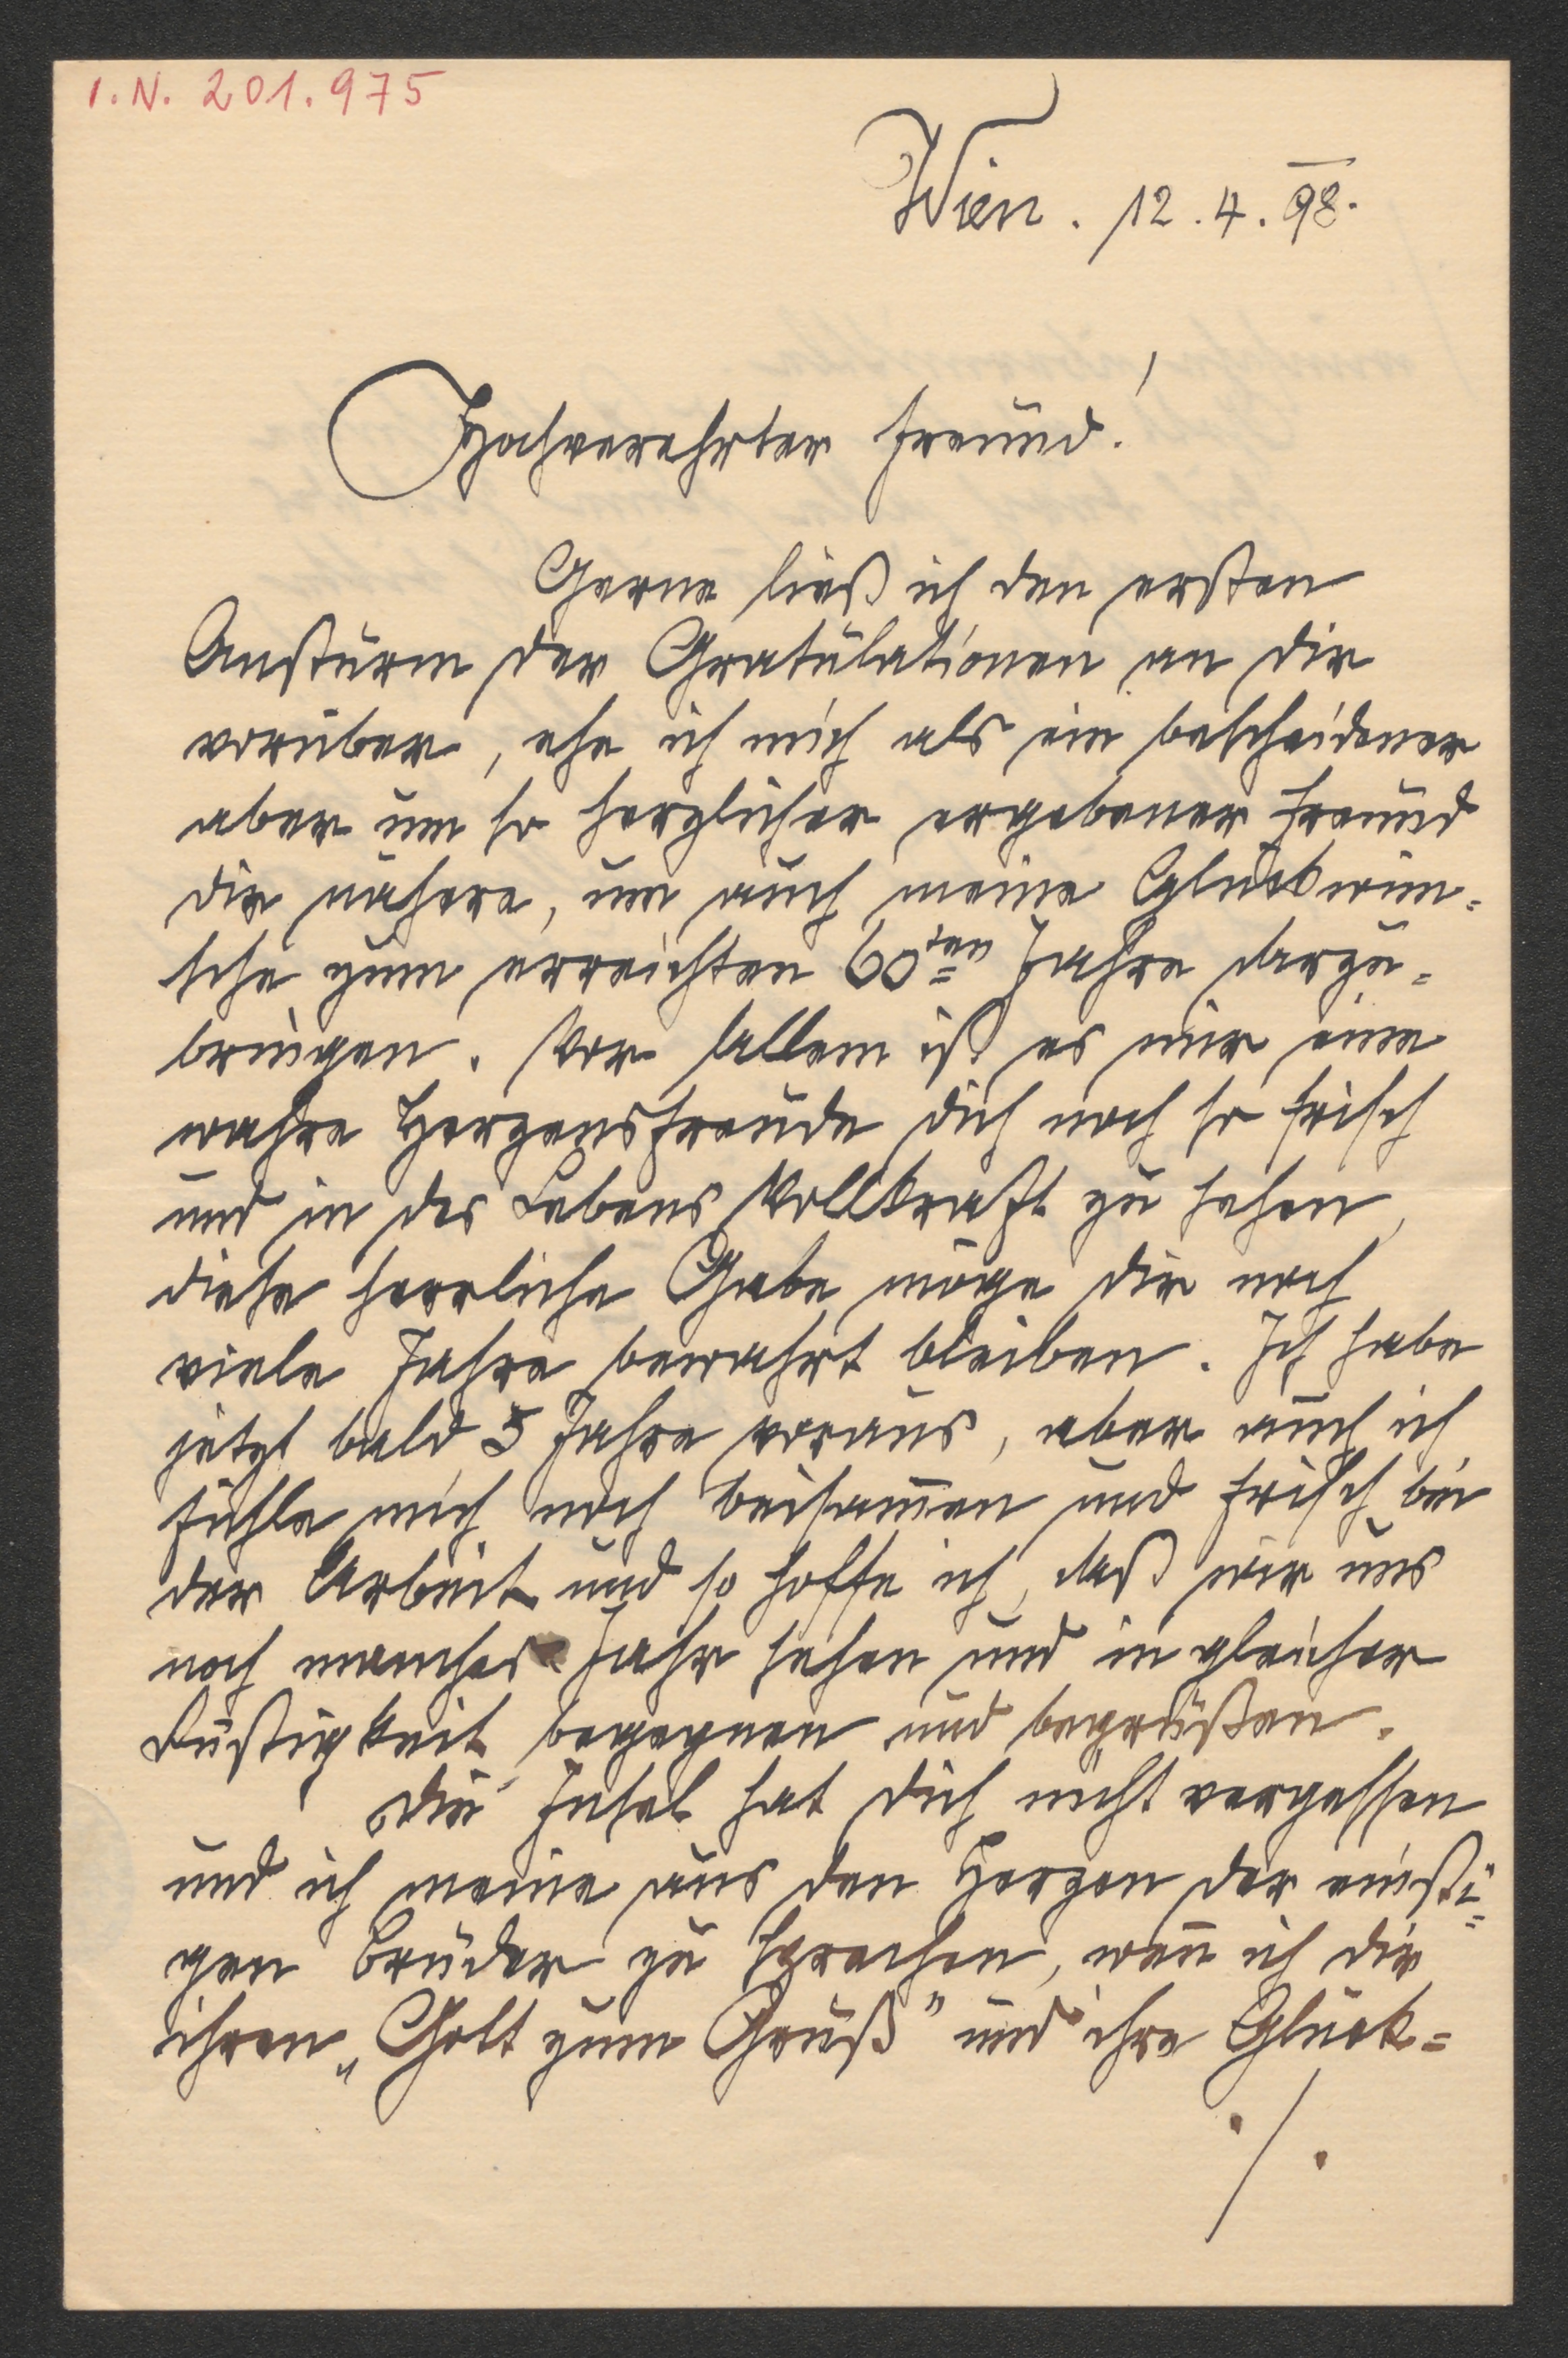 I.N. 201.975
Wien. 12.4.98.
Hochverehrter Freund!
Gerne ließ ich den ersten
Ansturm der Gratulationen an dir
vorüber, ehe ich mich als ein bescheidener
aber um so herzlicher ergebener Freund
dir nähere, um auch meine Glückwün=
sche zum erreichten 60ten Jahre darzu=
bringen. Vor allem ist es mir eine
wahre Herzensfreude dich noch so frisch
und in des Lebens Vollkraft zu sehen,
diese herrliche Gabe möge dir noch
viele Jahre bewahrt bleiben. Ich habe
jetzt bald 5 Jahre voraus, aber auch ich
fühle mich noch beisam̅en und frisch bei
der Arbeit und so hoffe ich, daß wir uns
noch manches Jahr sehen und in gleicher
Lustigkeit begegnen und begrüßen.
Die Insel hat dich nicht vergessen
und ich meine aus den Herzen der einsti=
gen Brüder zu sprechen, wen̅ ich dir
ihren „Gott zum Gruß" und ihre Glück=
./.